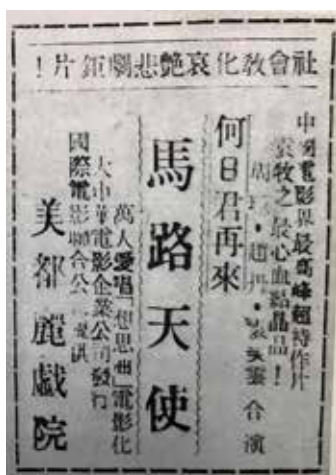 社會教化哀艷悲劇鉅片！
中國電影界最高峰超特作片
袁牧之最心血結晶品！
周 · 趙丹 · 雲合演
何日君再來
馬路天使
萬人愛唱「想思曲」電影化
大中華電影企業公司發行
國際電影聯合公司 供
美都麗戲院